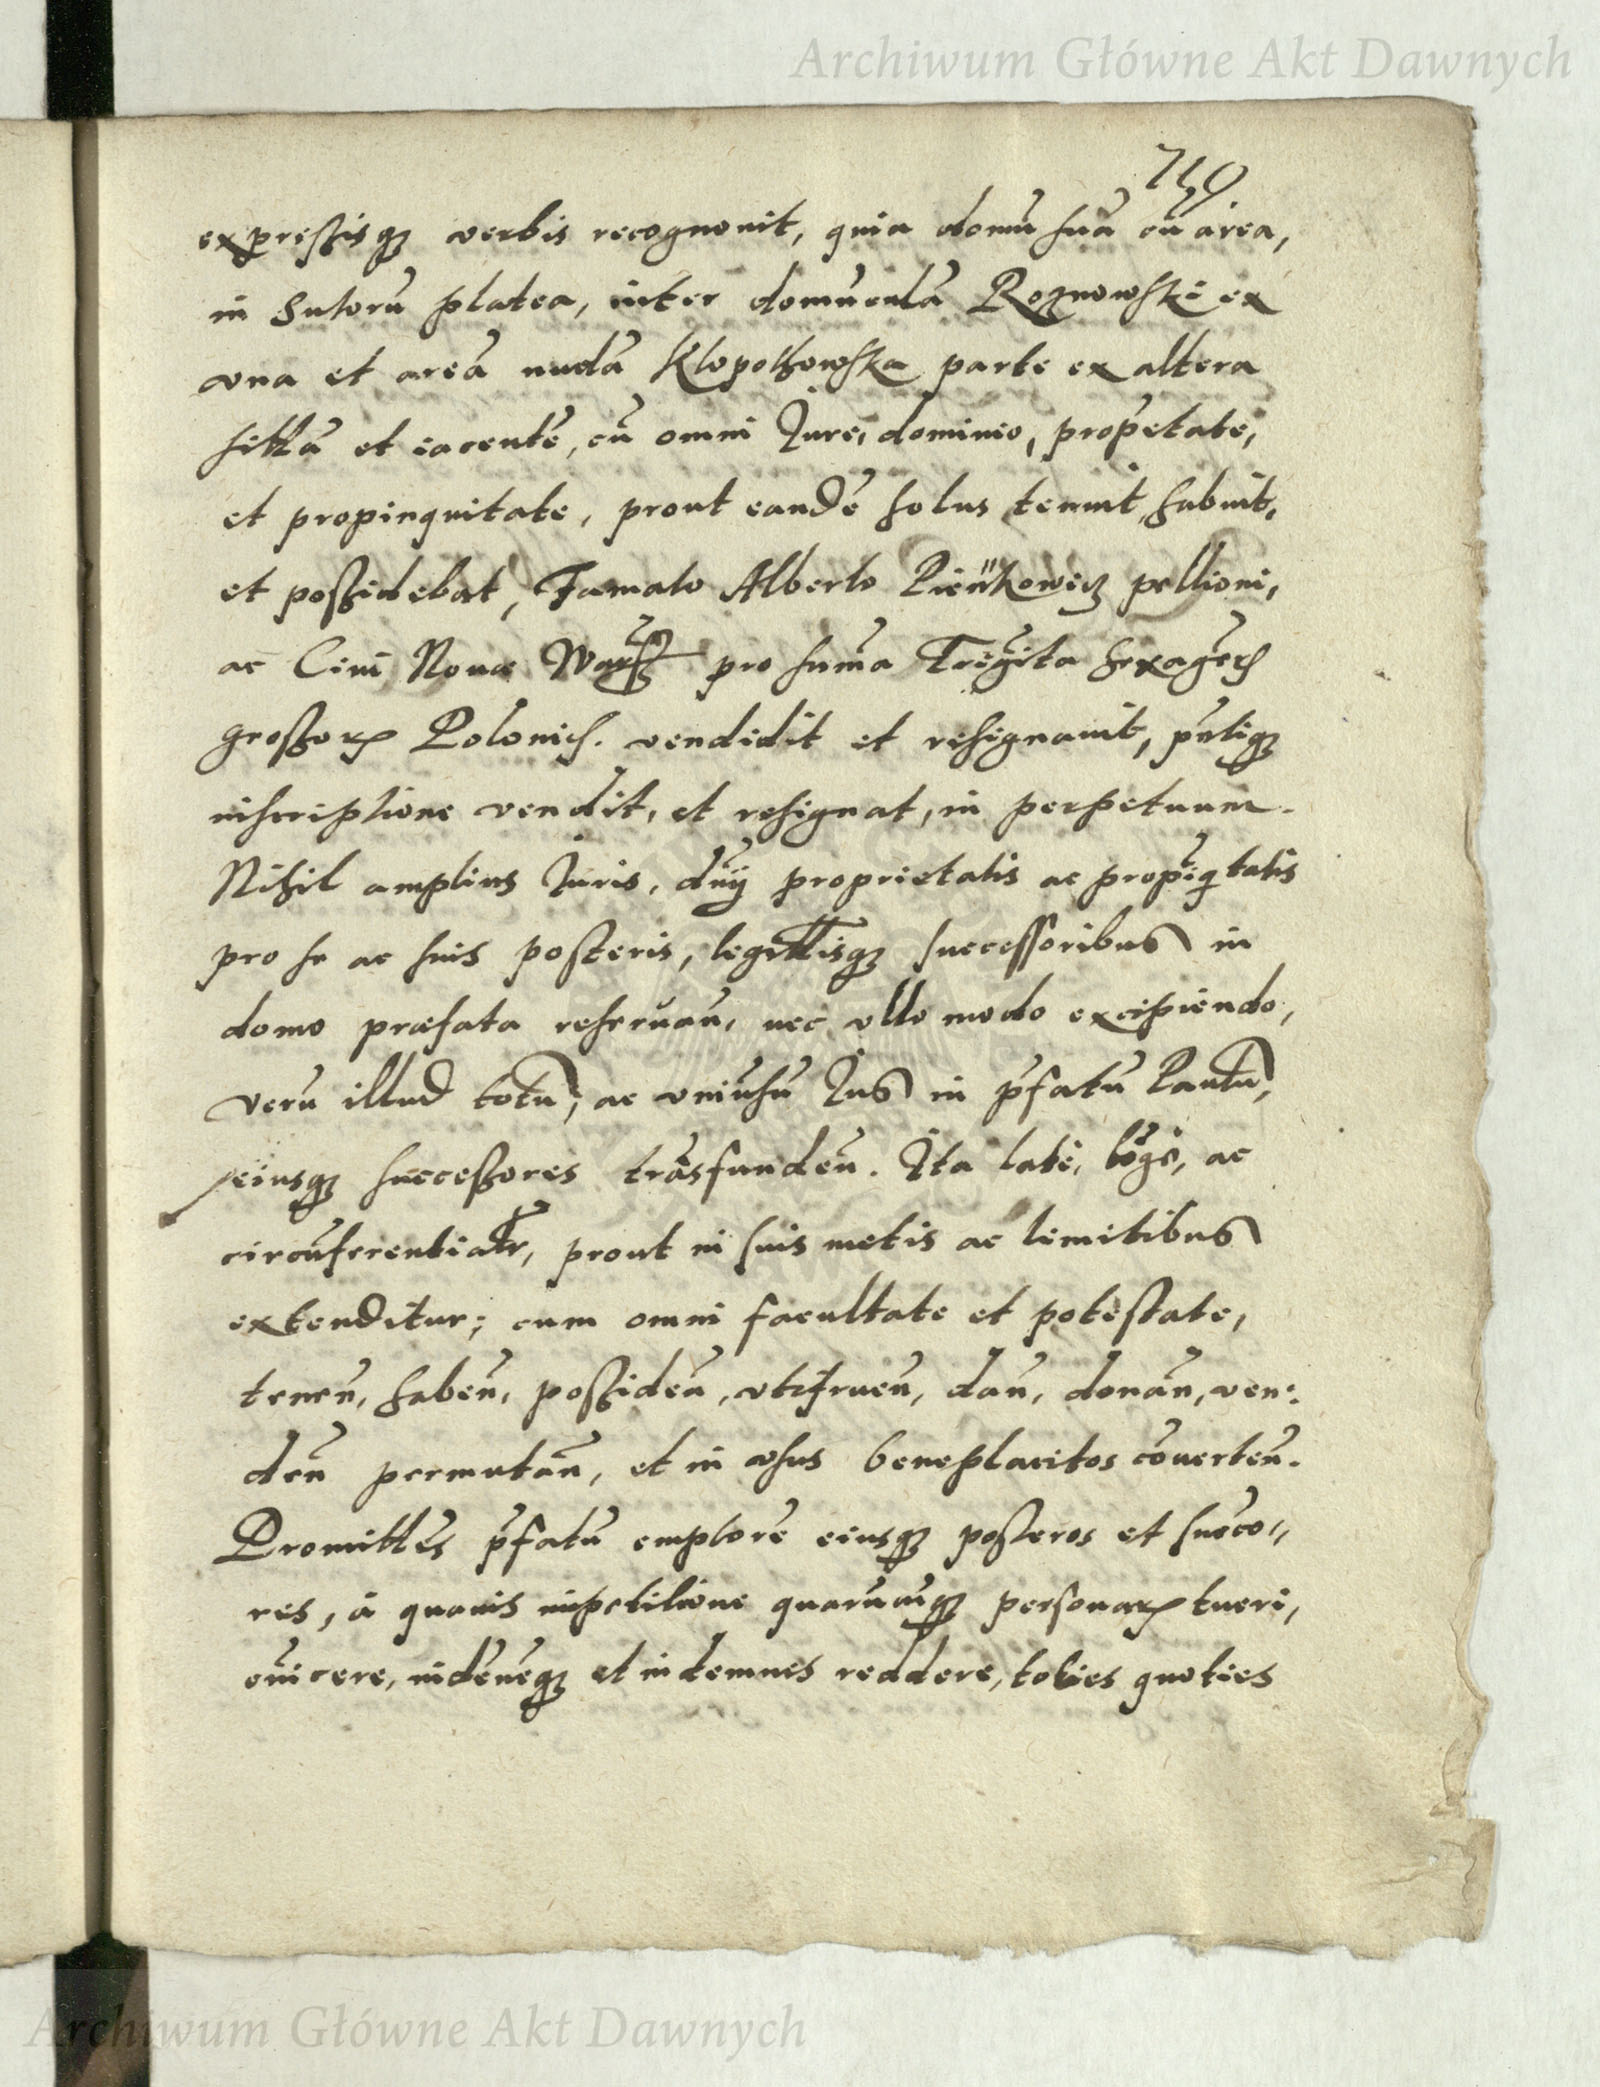 Archiwum Główne Akt Dawnych
expressisqꝫ verbis recognouit, quia domū suā cū area,
in Sutorū platea, inter domunculā Roznowski ex
vna et areā nudā Klopothowska parte ex altera
sittā et iacentē, cū omni Jure, dominio, propetate,
et propinquitate, prout eandē solus tenuit, habuit,
et possidebat, Famato Alberto Pieńkowicz pellioni,
ac Ciui Nouæ pro summa Trigīta
grossorꝝ Polonich. vendidit et resignauit, pntiqꝫ
inscriptione vendit, et resignat, in perpetuum.
Nihil amplius Juris, dnij proprietatis ac propīqtatis
pro se ac suis posteris, legittisqꝫ successoribus in
domo præfata reseruan̄, nec vllo modo excipiendo,
verū illud totū, ac vniuersū Jus in pfatū Paulū,
eiusqꝫ successores trāsfunden̄. Ita late, lōge, ac
circūferentialr, prout in suis metis ac limitibus
extenditur; cum omni facultate et potestate,
tenen̄, haben̄, possiden̄, vtifruen̄, dan̄, donan̄, ven:
den̄ permutan̄, et in vsus beneplacitos cōuerten̄.
Promittēs pfatū emptorē eiusqꝫ posteros et succo-
res, à quauis impetitione quarūcūqꝫ personarꝝ tueri,
euicere, indēnēqꝫ et indemnes reddere, toties quoties
Archiwum Główne Akt Dawnych